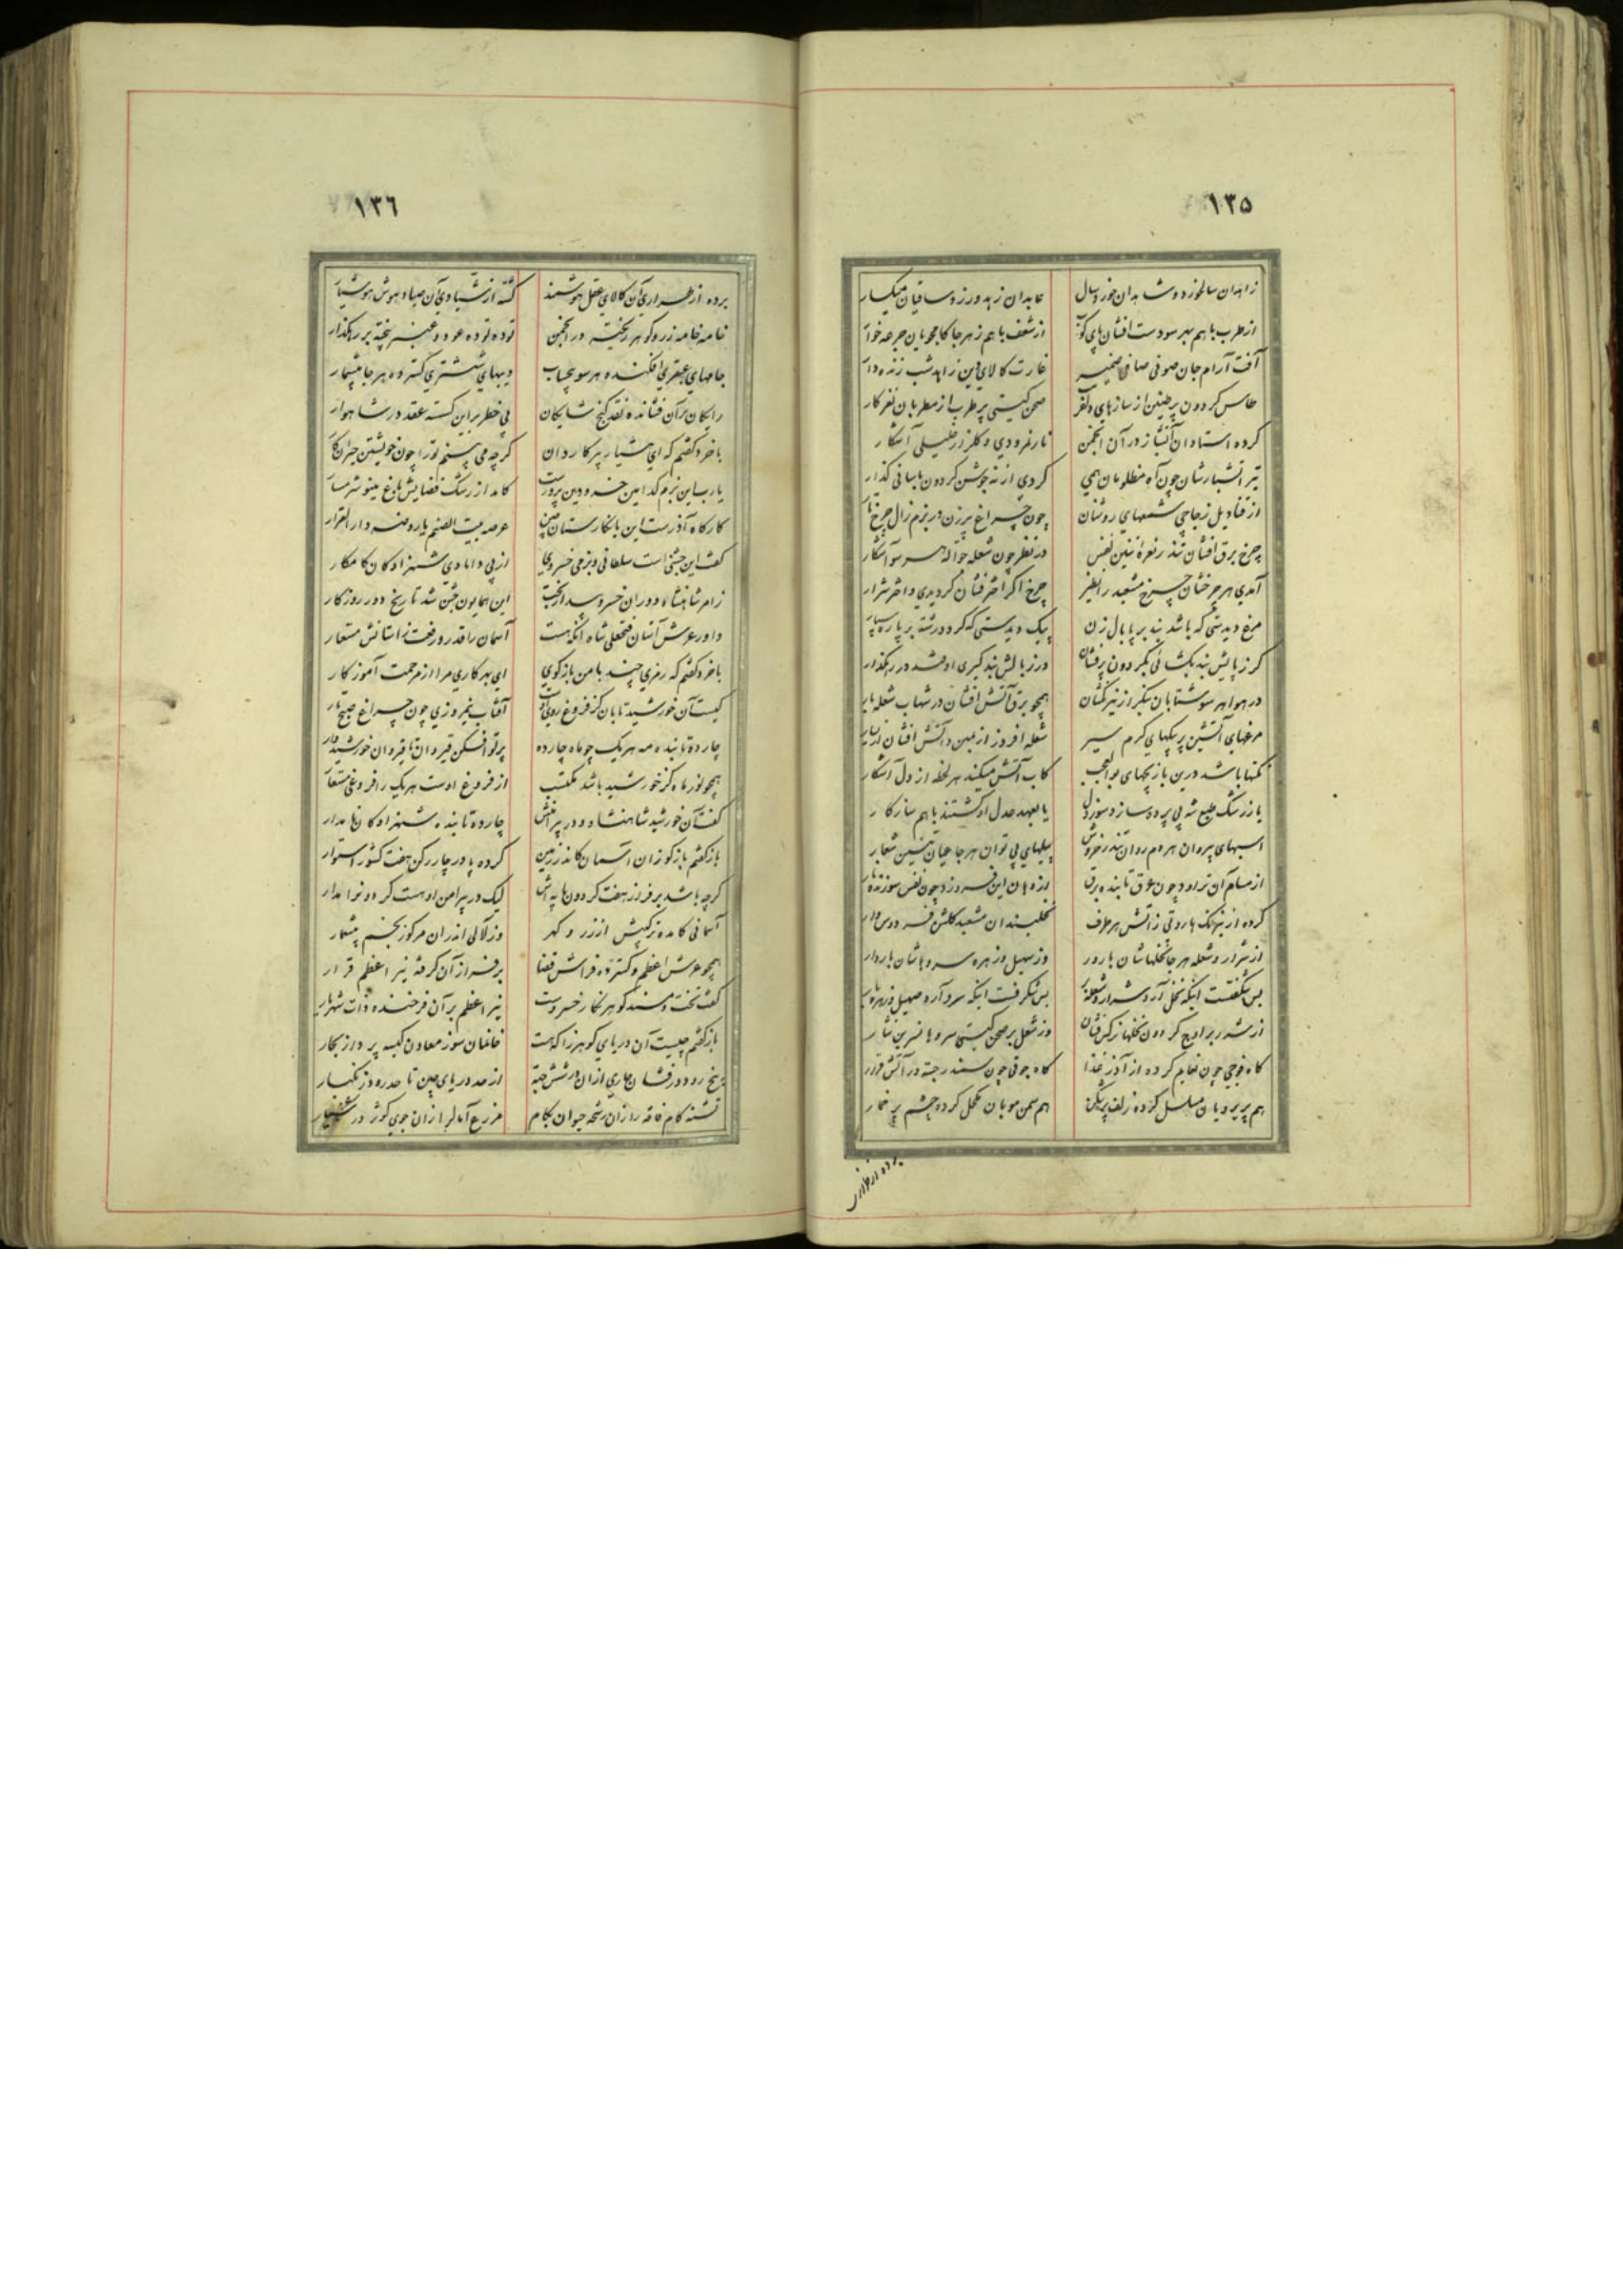 ١٣٥
زاهدان سالخورد و شاهدان خورد سال عابدان زهد ورز و ساقیان میکسار
از طرب با هم بهر سو دست افشان پای کوب از شعف با هم ز هر جا کامجویان جرعه خوار
آفت آرام جان صوفی صافی ضمیر غارت کالای دین زاهد شب زنده دار
طاس کردون پر طنین از سازهای صحن کیتی پر طرب از مطربان نغز کار
کرده استادان آتشباز در آن انجمن نار نمرودی و کلزار خلیلی آشکار
تیر آتشبارشان چون آه مظلومان همی کردی از نه جوشن کردون بآسانی کذار
از قنادیل زجاجی شمعهای روشنان چون چراغ پیرزن در بزم زال چرخ تار
چرخ برق افشان تندر نعره تنین نفس در نظر چون شعله جواله هر سو آشکار
آمدی هر چرخشان چرخ مشعبد را نظیر چرخ اکر اختر فشان کردیدی و اختر شرار
مرغ دیدستی که باشد بند بر پا بال زن پیک دیدستی که کردد رشته بر پا ره سپار
کر ز پایش بند بکشائی بکردون پر فشان ور ز بالش بند کیری اوفتد در رهکذار
در هوا هر سو شتابان سبکبر از تیر همچو برق آتش افشان در شهاب شعله بار
مرغهای آتشین پر پیکهای کرم سیر شعله افروز از یمین و آتش افشان از یسار
باشد درین بازیچهای بوالعجب کآب آتش میکند هر لحظه از دل آشکار
یا ز رشک طبع شه بی پرده ساز و سوز دل یا بعهد عدل او کشتند با هم سازکار
اسبهای پیروان هر دم روان تندر خروش پیلهای بی توان هر جا عیان تنین شعار
از مسام آن تراود چون عرق تابنده برق از دهان این فروزد چون نفس سوزنده نار
کرده از نیرنک هاروتی ز آتش هر طرف نخلبندان مشعبد کلشن فردوس وار
از شرار و شعله هر جا نخلهاشان بارور وز سهیل و زهره سروهاشان باردار
بس شکفتست اینکه نخل آرد شرار و شعله بر بس شکرفست اینکه سرو آرد سهیل و زهره بار
از شرر بر اوج کردون نخلها نرکس فشان وز شعل بر صحن کیتی سروها نسرین نثار
کاه فوجی چون نعایم کرده از آذر غذا کاه جوقی چون سمندر جسته در آتش قرار
هم پریرویان مسلسل کرده زلف پر شکن هم سمن مویان مکحل کرده چشم پر خمار
برده از طراری
١٣٦
برده از طراری آن کالای عقل هوشمند کشته از شیادی آن صیاد هوش هوشیار
خامه خامه زر و کوهر ریخته در انجمن توده توده عود و عنبر پخته بر رهکذار
جامهای عبقری افکنده هر سو بیحساب دیبهای شستری کسترده هر جا بیشمار
رایکان بر آن فشانده نقد کنج شایکان بی خطر بر این کسسته عقد در شاهوار
با خرد کفتم که ای هشیار پیر کاردان کرچه می بینم تو را چون خویشتن حیران کار
یا رب این بزم کدامین خسرو دین پرورست کامد از رشک فضایش باغ مینو شرمسار
کارکاه آذرست این یا نکارستان چین عرصه بیت الصنم یا روضه دار القرار
کفت این جشنی است سلطانی و بزمی خسروی از پی دامادی شهزادکان کامکار
ز امر شاهنشاه دوران خسرو بیدار بخت این همایون جشن شد تاریخ دور روزکار
داور عرش آستان فتحعلی شاه آنکه هست آسمان را قدر و رفعت ز آستانش مستعار
با خرد کفتم که رمزی چند با من باز کوی ای بهر کاری مرا از مرحمت آموزکار
کیست آن خورشید تابان کز فروغ روی او آفتاب نیمروزی چون چراغ صبح تار
چارده تابنده مه هر یک چو ماه چارده پرتو افکن قیروان تا قیروان خورشید وار
همچو نور ماه کز خورشید باشد مکتسب از فروغ اوست هر یک را فروغی مستعار
کفت آن خورشید شاهنشاه و در پیرامنش چارده تابنده شهزادکان نامدار
باز کفتم باز کو زان آسمان کاندر زمین کرده پا در چار رکن هفت کشور استوار
کرچه باشد بر فراز هفت کردون پایه اش لیک در پیرامن اوست کردونرا مدار
آسمانی کامده ترکیبش از زر و کهر وز لآلی اندران مرکوز بیشمار
همچو عرش اعظم و کسترده فراش قضا بر فراز آن کرفته نیر اعظم قرار
کفت تخت و مسند کوهر نکار خسروست نیر اعظم بر آن فرخنده ذات شهریار
باز کفتم چیست آن دریای کوهرزا که هست خانمان سوز معادن کیسه پرداز بحار
پنج رود درفشان جاری ازان در شش جهة از حد دریای چین تا حد رود زنکبار
تشنه کام فاقه را زان رشحه حیوان بکام مزرع آمال را زان جوی کوثر در